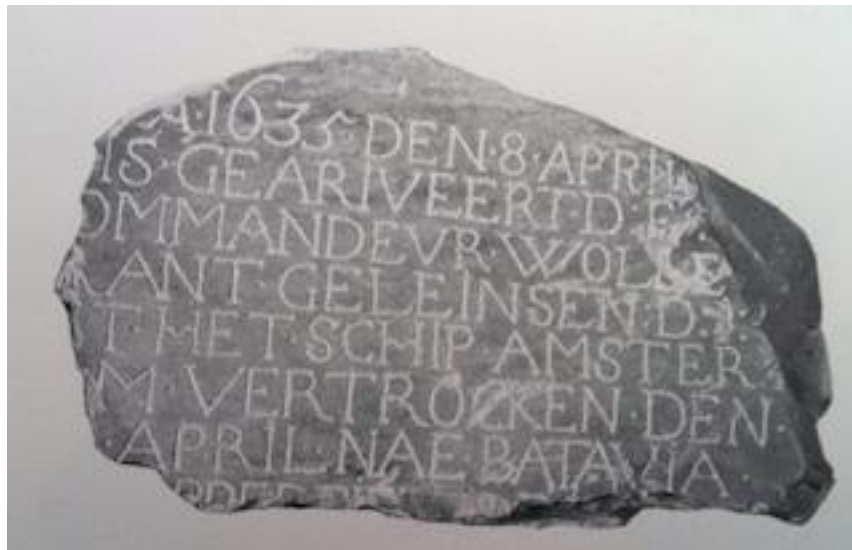 A·1635·DEN·8·APRIL
IS·GEARIVEERT·D·E·
OMMANDEVR·WOLLE
RANT·GELEINSEN·D·I·
T·MET·SCHIP·AMSTER
M·VERTROCKEN·DEN·
·APRIL·NAE BATAVIA